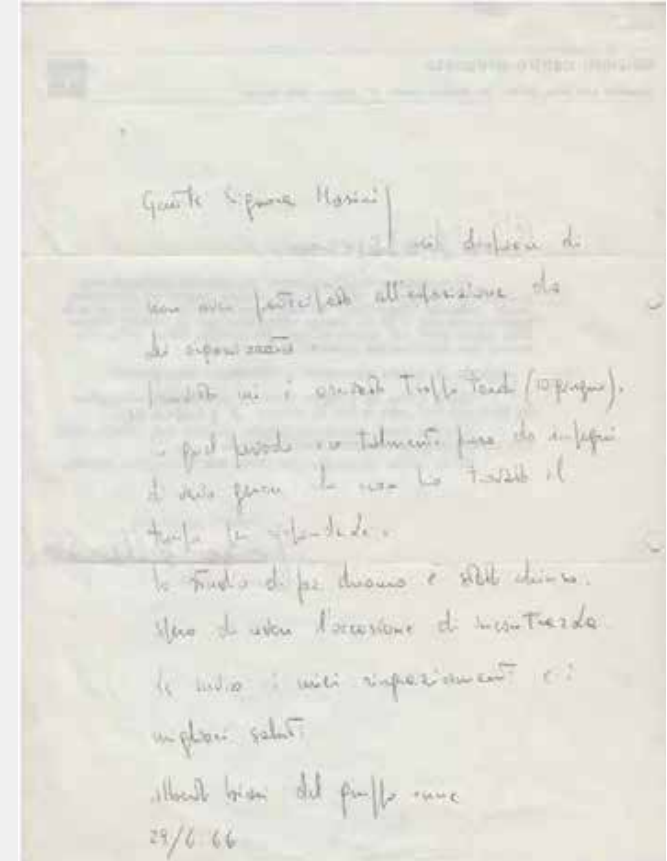 Gent.le Signora Masini
mi dispiace di
non aver partecipato all'esposizione da
lei organizzata.
mi è arrivato troppo tardi (10 giugno).
in quel periodo ero talmente pieno da impegni
di vario genere che non ho trovato il
tempo per risponderle.
lo studio di per è stato chiuso.
spero di avere l'occasione di incontrarla
le invio i miei ringraziamenti e i
migliori saluti
alberto biasi del gruppo enne
29/6 66